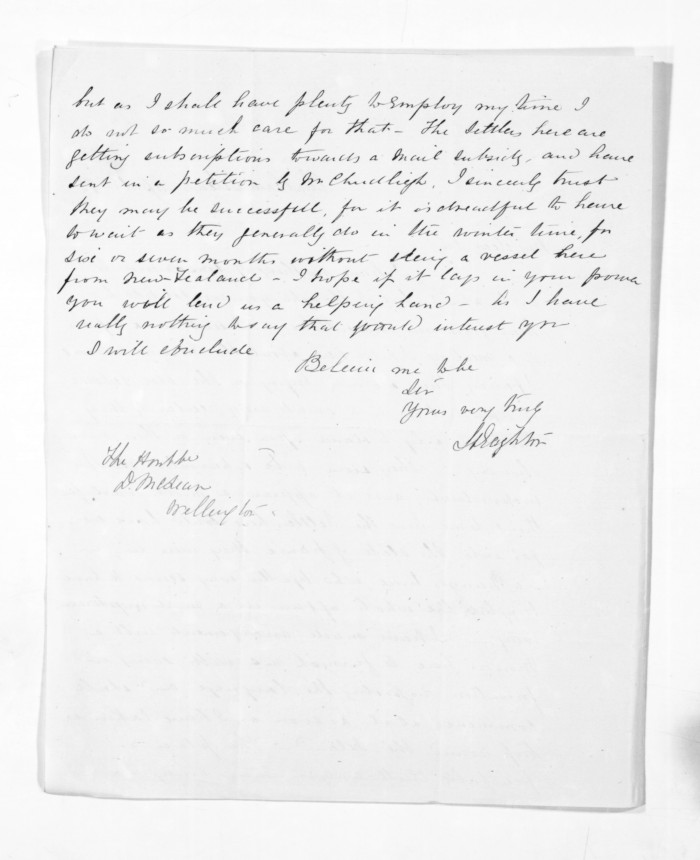 but as I shall have plenty to Employ my time I
do not so much care for that - The Settlers here are
getting subscriptions towards a mail subsidy, and have
sent in a petition by Mr Chudleigh, I sincerely trust
they may be successfull, for it is dreadful to have
to wait as they generally do in the winter time, for
six or seven months without seeing a vessel here
from New-Zealand - I hope if it lays in your power
you will lend us a helping hand - As I have
really nothing to say that would interest you
I will conclude
Believe me to be
Sir
Yours very truly
Deighton
The Honble
D. McLean
Wellington